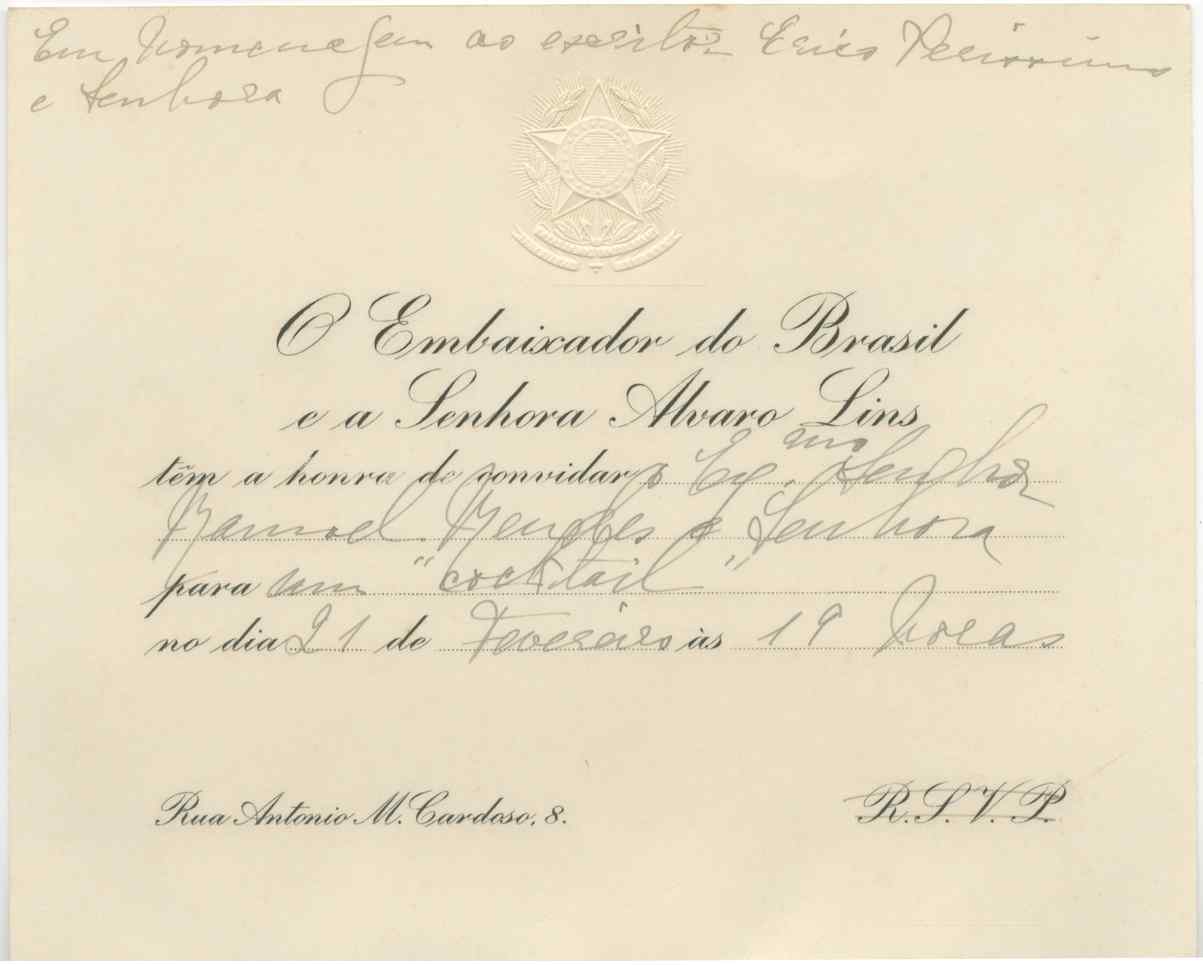 Em homenagem ao escritor Erico Verissimo
e Senhora
O Embaixador do Brasil
e a Senhora Alvaro Lins
têm a honra de convidar o Ex.mo Senhor
Manuel Mendes e Senhora
para um "cocktail"
no dia 21 de Fevereiro às 19 horas
Rua Antonio M. Cardoso, 8.
R.S.V.P.